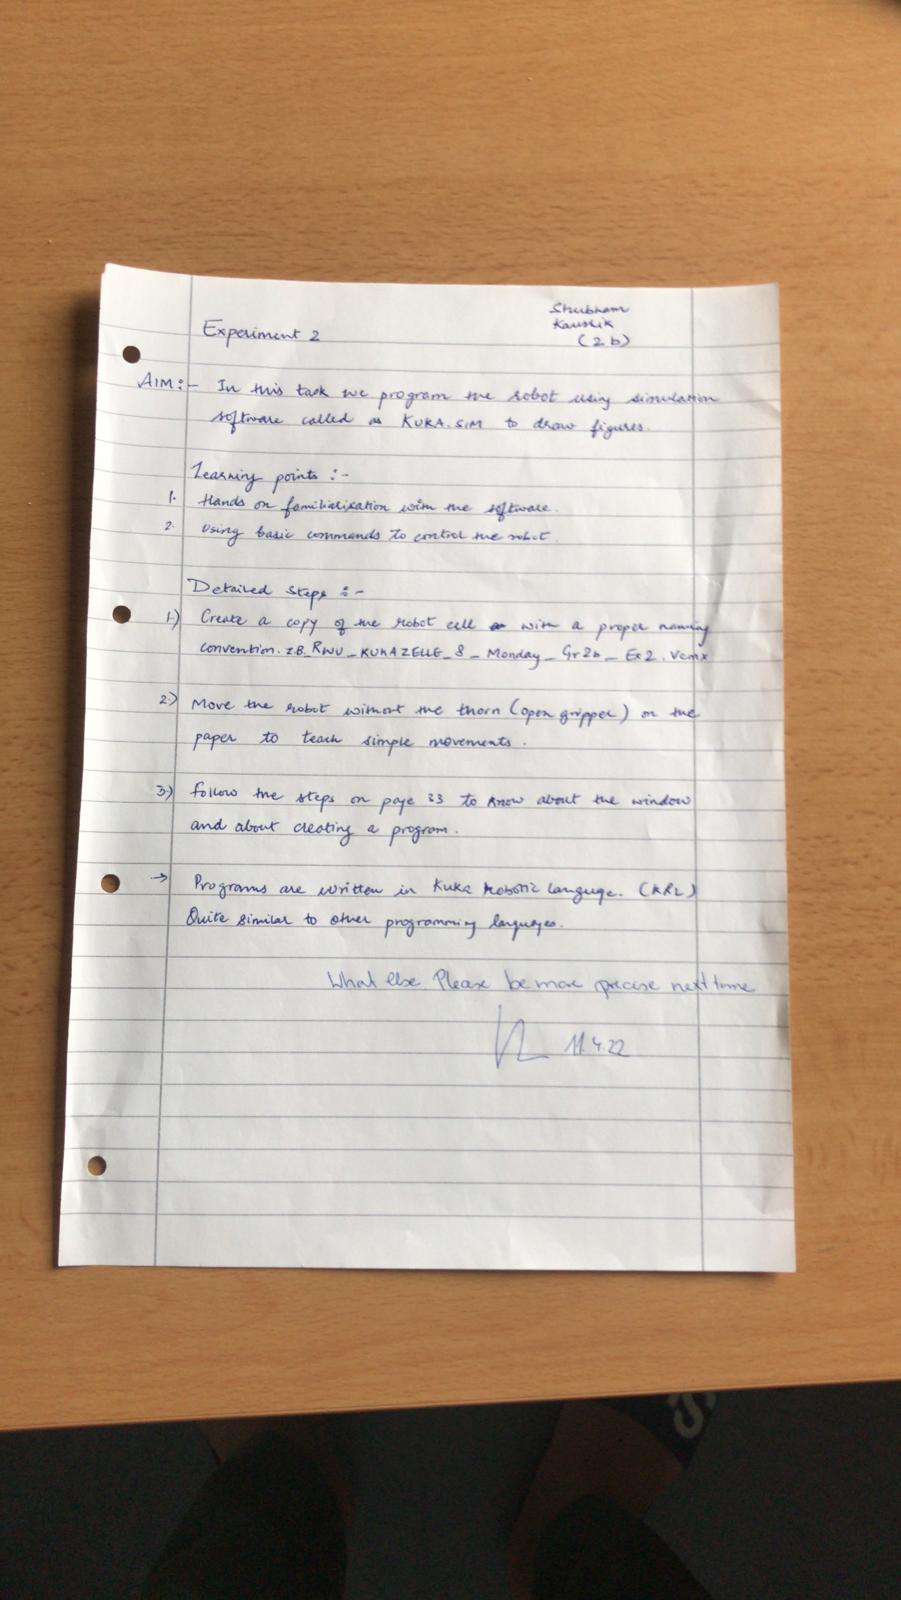 Shubham
Kaushik
(2b)
Experiment 2
AIM:- In this task we program the robot using simulation
software called as KUKA.SIM to draw figures.
Learning points :-
1. Hands on familiarisation with the software.
2. Using basic commands to control the robot.
Detailed Steps :-
1.) Create a copy of the robot cell with a proper naming
convention. ZB_RWU_KUKAZELLE_8_Monday_Gr2b_Ex2.vcmx
2.) Move the robot without the thorn (open gripper) on the
paper to teach simple movements.
3.) Follow the steps on page 33 to know about the window
and about creating a program.
→ Programs are written in Kuka Robotic Languge. (KRL)
Quite similar to other programming languages.
What else Please be more precise next time
11.4.22